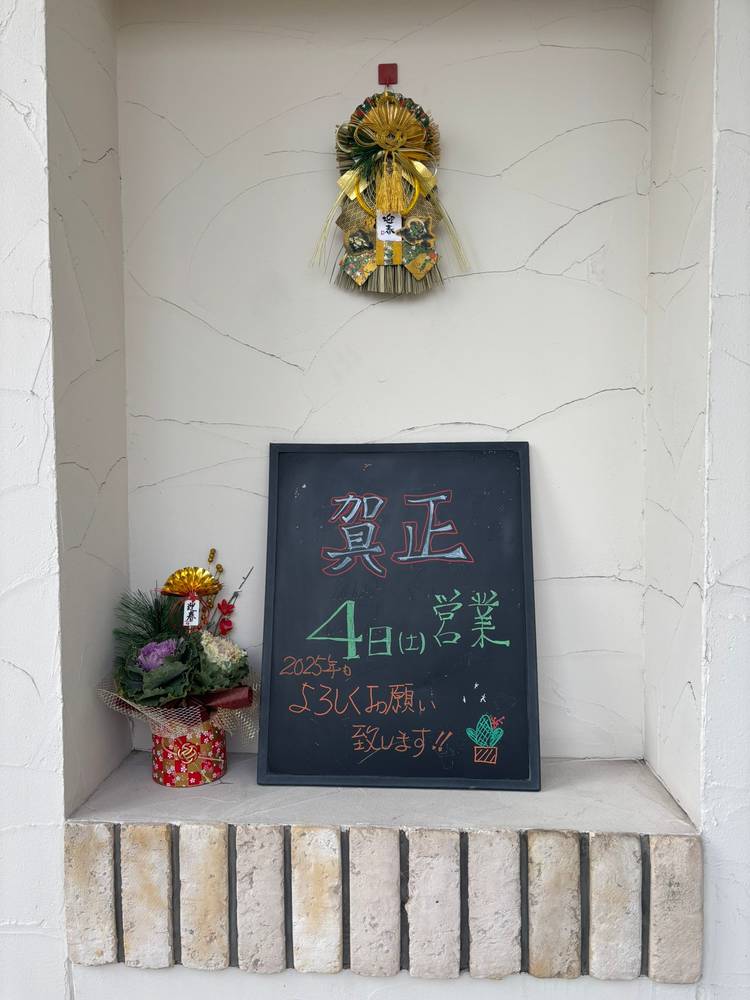 迎春
迎春
賀正
4日(土)営業
2025年も
よろしくお願い
致します!!